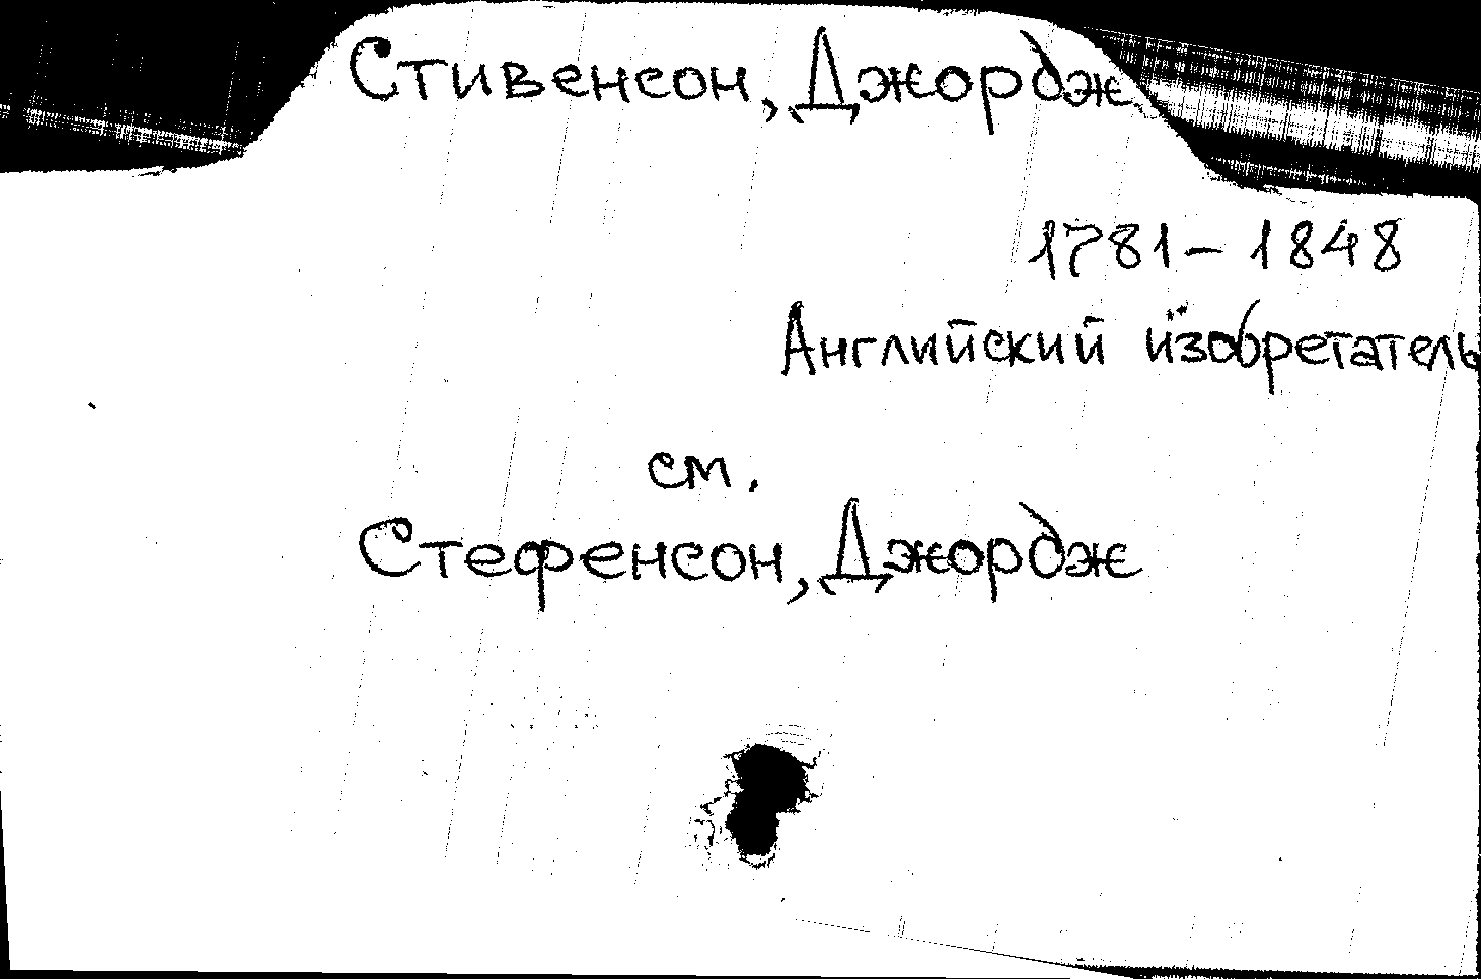 Стивенсон, Джордж
1781 – 1848
Английский изобретатель
см.
Стефенсон, Джордж